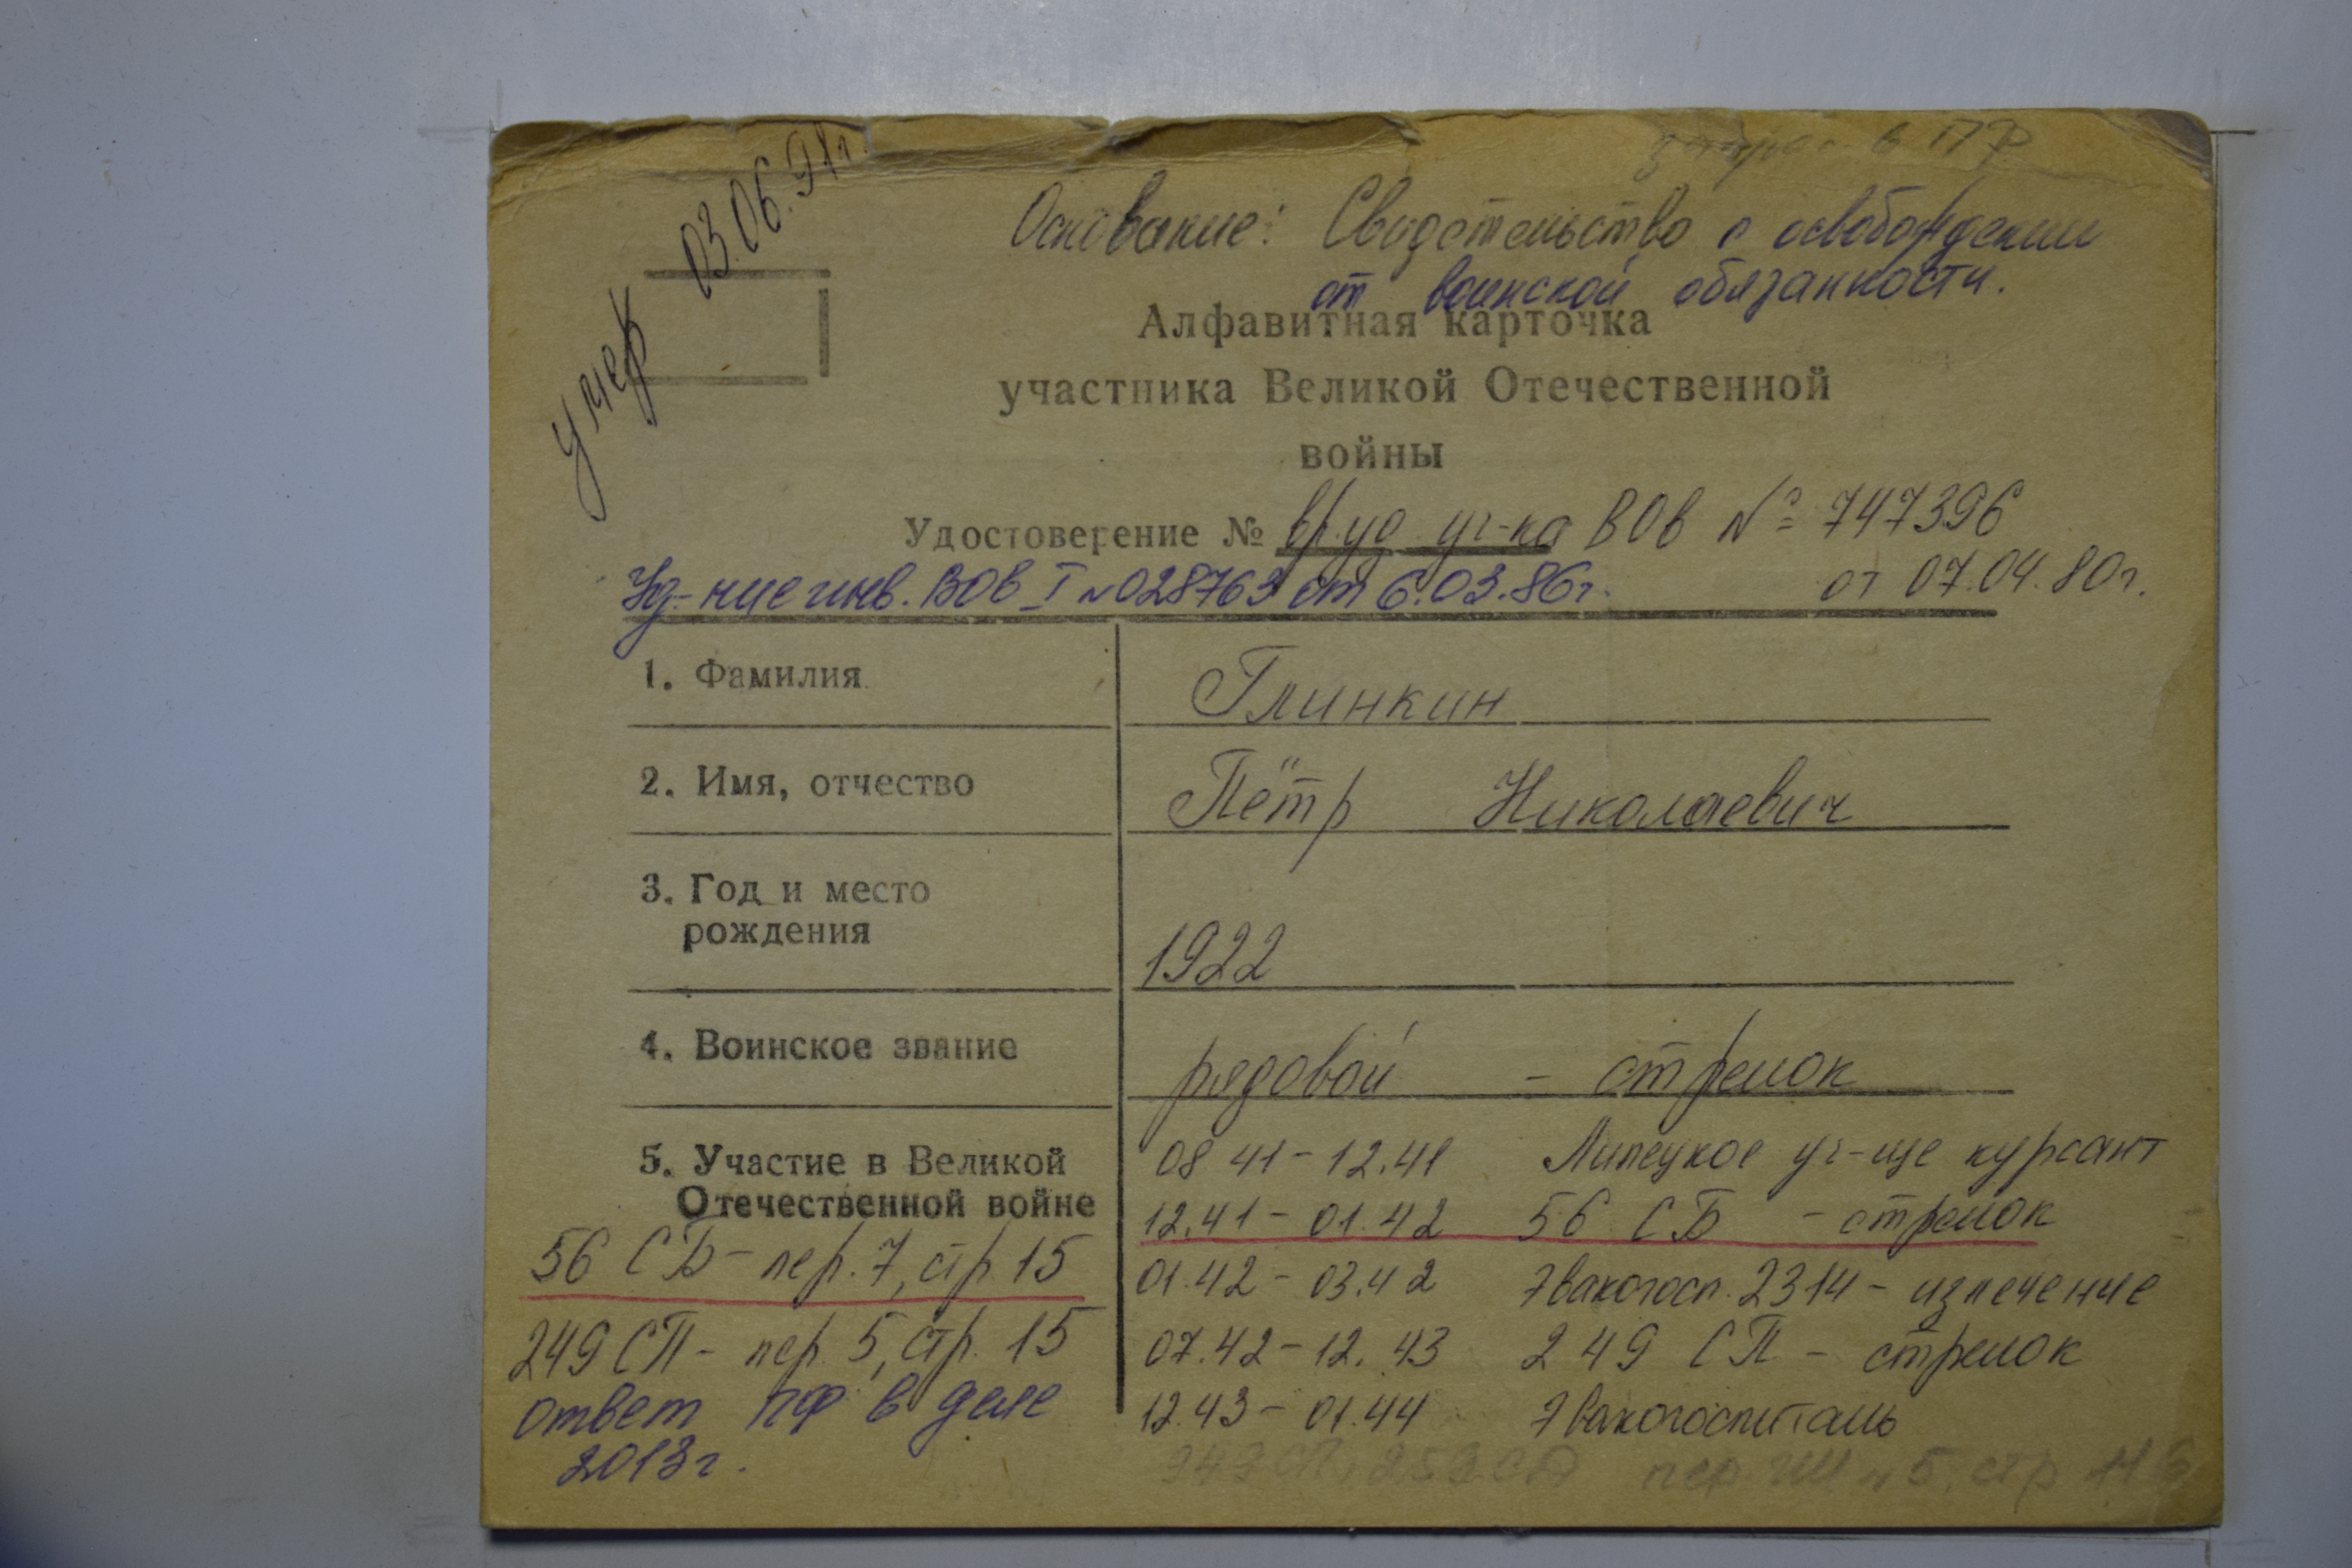 запрос в ПФ
умер 03.06.91г.
Основание: Свидетельство о освобождении
от воинской обязанности.
Алфавитная карточка
участника Великой Отечественной
войны
Удостоверение № вр.уд уч-ка ВОв № 747396
от 07.04.80г.
Уд-ние инв. ВОВ I № 028763 от 6.03.86г.
1. Фамилия Глинкин
2. Имя, отчество Пётр Николаевич
3. Год и место
рождения 1922
4. Воинское звание рядовой - стрелок
5. Участие в Великой
Отечественной войне
08 41 - 12.41 Липецкое уч-ще курсант
12.41 - 01.42 56 СБ - стрелок
01.42 - 03.42 Эвакогосп. 2314 - излечение
07.42 - 12.43 249 СП - стрелок
12.43 - 01.44 Эвакогоспиталь
56 СБ - пер. 7, стр 15
249 СП - пер. 5, стр. 15
ответ ПФ в деле
2013г.
249 СП, 252 СД пер № 5, стр